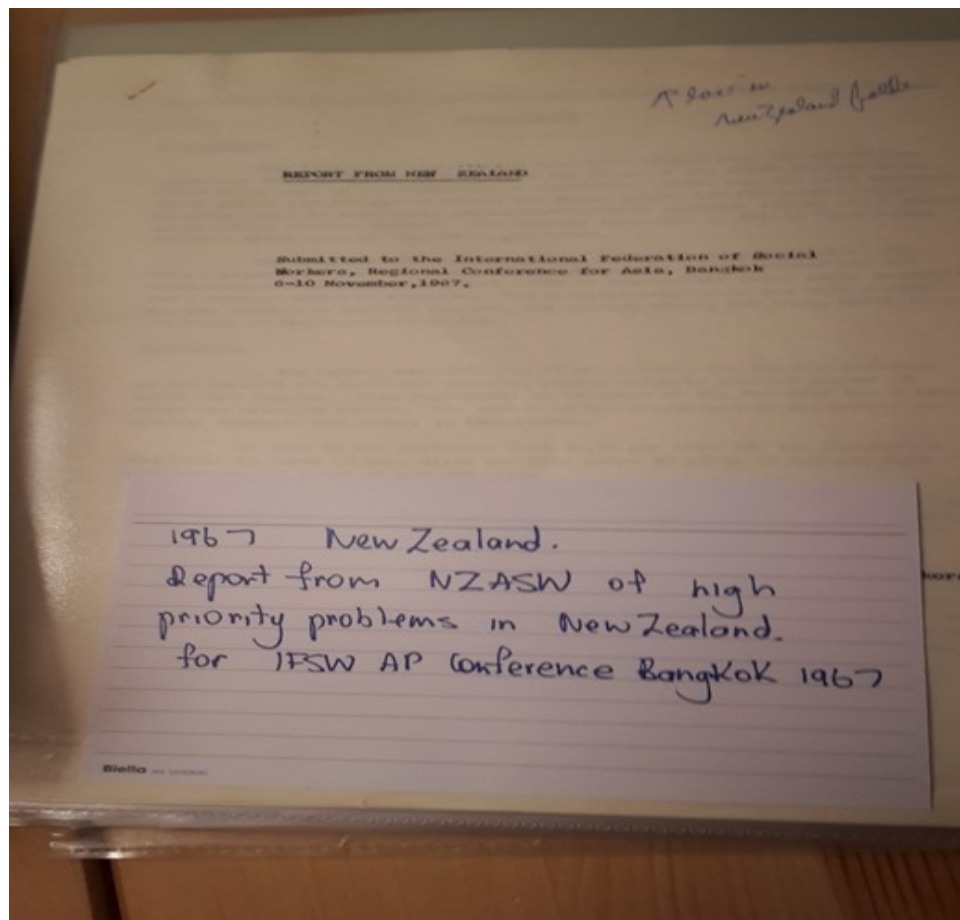 New Zealand
REPORT FROM NEW ZEALAND
Submitted to the International Federation of Social
Workers, Regional Conference for Asia, Bangkok
6-10 November,1967.
1967 New Zealand.
Report from NZASW of high
priority problems in New Zealand.
for IFSW AP Conference Bangkok 1967
Biella